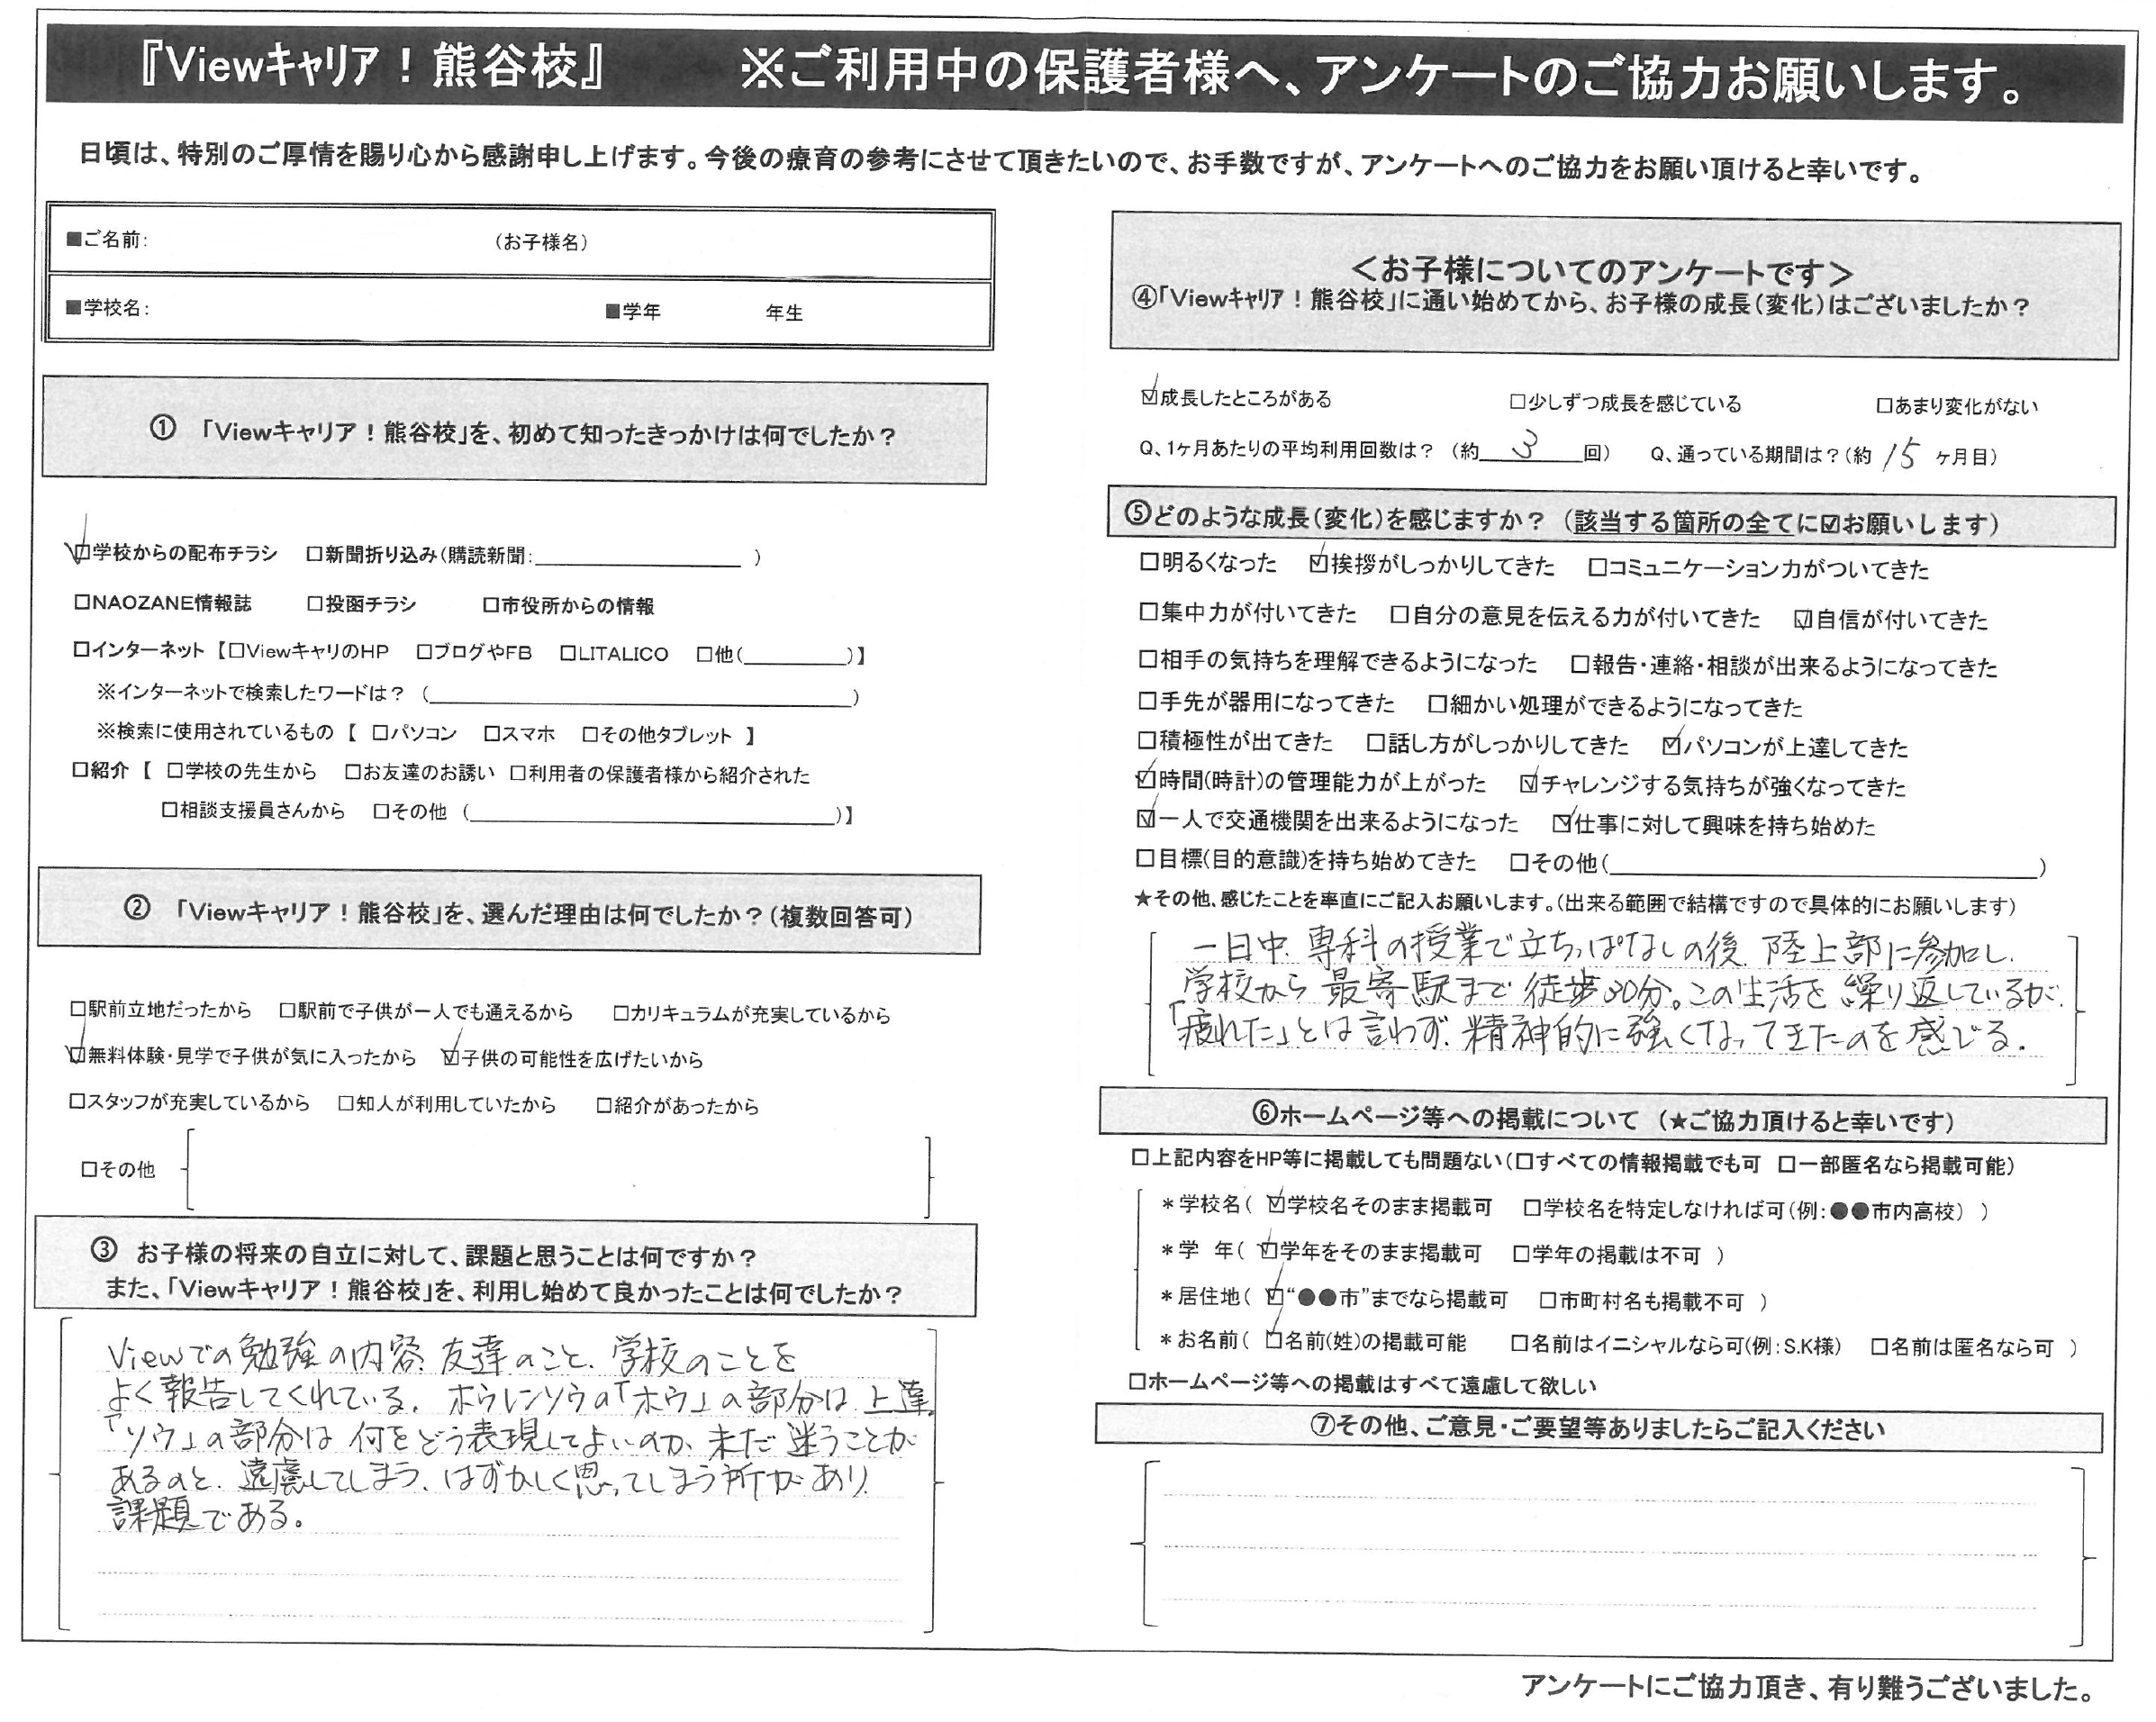 『Viewキャリア！熊谷校』　※ご利用中の保護者様へ、アンケートのご協力お願いします。
日頃は、特別のご厚情を賜り心から感謝申し上げます。今後の療育の参考にさせて頂きたいので、お手数ですが、アンケートへのご協力をお願い頂けると幸いです。
■ご名前：　（お子様名）
■学校名：　■学年　年生
① 「Viewキャリア！熊谷校」を、初めて知ったきっかけは何でしたか？
☑学校からの配布チラシ　□新聞折り込み（購読新聞：　）
□NAOZANE情報誌　□投函チラシ　□市役所からの情報
□インターネット【□ViewキャリのHP　□ブログやFB　□LITALICO　□他（　）】
※インターネットで検索したワードは？（　）
※検索に使用されているもの【 □パソコン　□スマホ　□その他タブレット 】
□紹介【 □学校の先生から　□お友達のお誘い　□利用者の保護者様から紹介された
□相談支援員さんから　□その他（　）】
② 「Viewキャリア！熊谷校」を、選んだ理由は何でしたか？（複数回答可）
□駅前立地だったから　□駅前で子供が一人でも通えるから　□カリキュラムが充実しているから
☑無料体験・見学で子供が気に入ったから　☑子供の可能性を広げたいから
□スタッフが充実しているから　□知人が利用していたから　□紹介があったから
□その他
③ お子様の将来の自立に対して、課題と思うことは何ですか？
また、「Viewキャリア！熊谷校」を、利用し始めて良かったことは何でしたか？
Viewでの勉強の内容、友達のこと、学校のことを
よく報告してくれている。ホウレンソウの「ホウ」の部分は上達。
「ソウ」の部分は何をどう表現してよいのか、未だ迷うことが
あるのと、遠慮してしまう、はずかしく思ってしまう所があり
課題である。
＜お子様についてのアンケートです＞
④「Viewキャリア！熊谷校」に通い始めてから、お子様の成長（変化）はございましたか？
☑成長したところがある　□少しずつ成長を感じている　□あまり変化がない
Q、1ヶ月あたりの平均利用回数は？（約 3 回）　Q、通っている期間は？（約 15 ヶ月目）
⑤どのような成長（変化）を感じますか？（該当する箇所の全てに☑お願いします）
□明るくなった　☑挨拶がしっかりしてきた　□コミュニケーション力がついてきた
□集中力が付いてきた　□自分の意見を伝える力が付いてきた　☑自信が付いてきた
□相手の気持ちを理解できるようになった　□報告・連絡・相談が出来るようになってきた
□手先が器用になってきた　□細かい処理ができるようになってきた
□積極性が出てきた　□話し方がしっかりしてきた　☑パソコンが上達してきた
☑時間（時計）の管理能力が上がった　☑チャレンジする気持ちが強くなってきた
☑一人で交通機関を出来るようになった　☑仕事に対して興味を持ち始めた
□目標（目的意識）を持ち始めてきた　□その他（　）
★その他、感じたことを率直にご記入お願いします。（出来る範囲で結構ですので具体的にお願いします）
一日中、専科の授業で立ちっぱなしの後、陸上部に参加し、
学校から最寄駅まで徒歩30分。この生活を繰り返しているが、
「疲れた」とは言わず、精神的に強くなってきたのを感じる。
⑥ホームページ等への掲載について （★ご協力頂けると幸いです）
□上記内容をHP等に掲載しても問題ない（□すべての情報掲載でも可　□一部匿名なら掲載可能）
＊学校名（ ☑学校名そのまま掲載可　□学校名を特定しなければ可（例：●●市内高校） ）
＊学　年（ ☑学年をそのまま掲載可　□学年の掲載は不可 ）
＊居住地（ ☑“●●市”までなら掲載可　□市町村名も掲載不可 ）
＊お名前（ ☑名前（姓）の掲載可能　□名前はイニシャルなら可（例：S.K様）　□名前は匿名なら可 ）
□ホームページ等への掲載はすべて遠慮して欲しい
⑦その他、ご意見・ご要望等ありましたらご記入ください
アンケートにご協力頂き、有り難うございました。